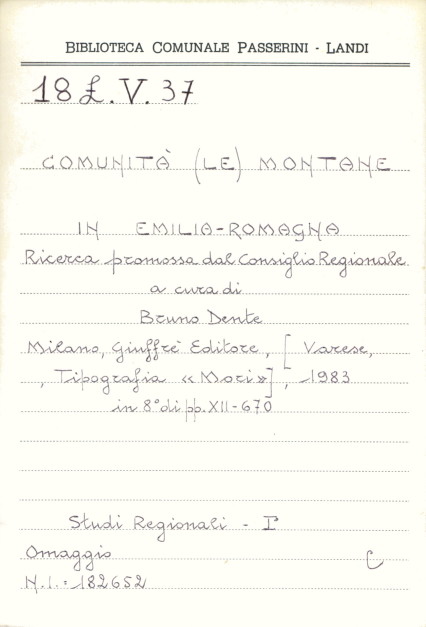 BIBLIOTECA COMUNALE PASSERINI - LANDI
18 £.V. 37
COMUNITÀ (LE) MONTANE
IN EMILIA-ROMAGNA
Ricerca promossa dal Consiglio Regionale
a cura di
Bruno Dente
Milano, Giuffrè Editore, [ Varese,
, Tipografia «Mori»], 1983
in 8° di pp. XII-670
Studi Regionali - I
Omaggio C
N.I.: 182652